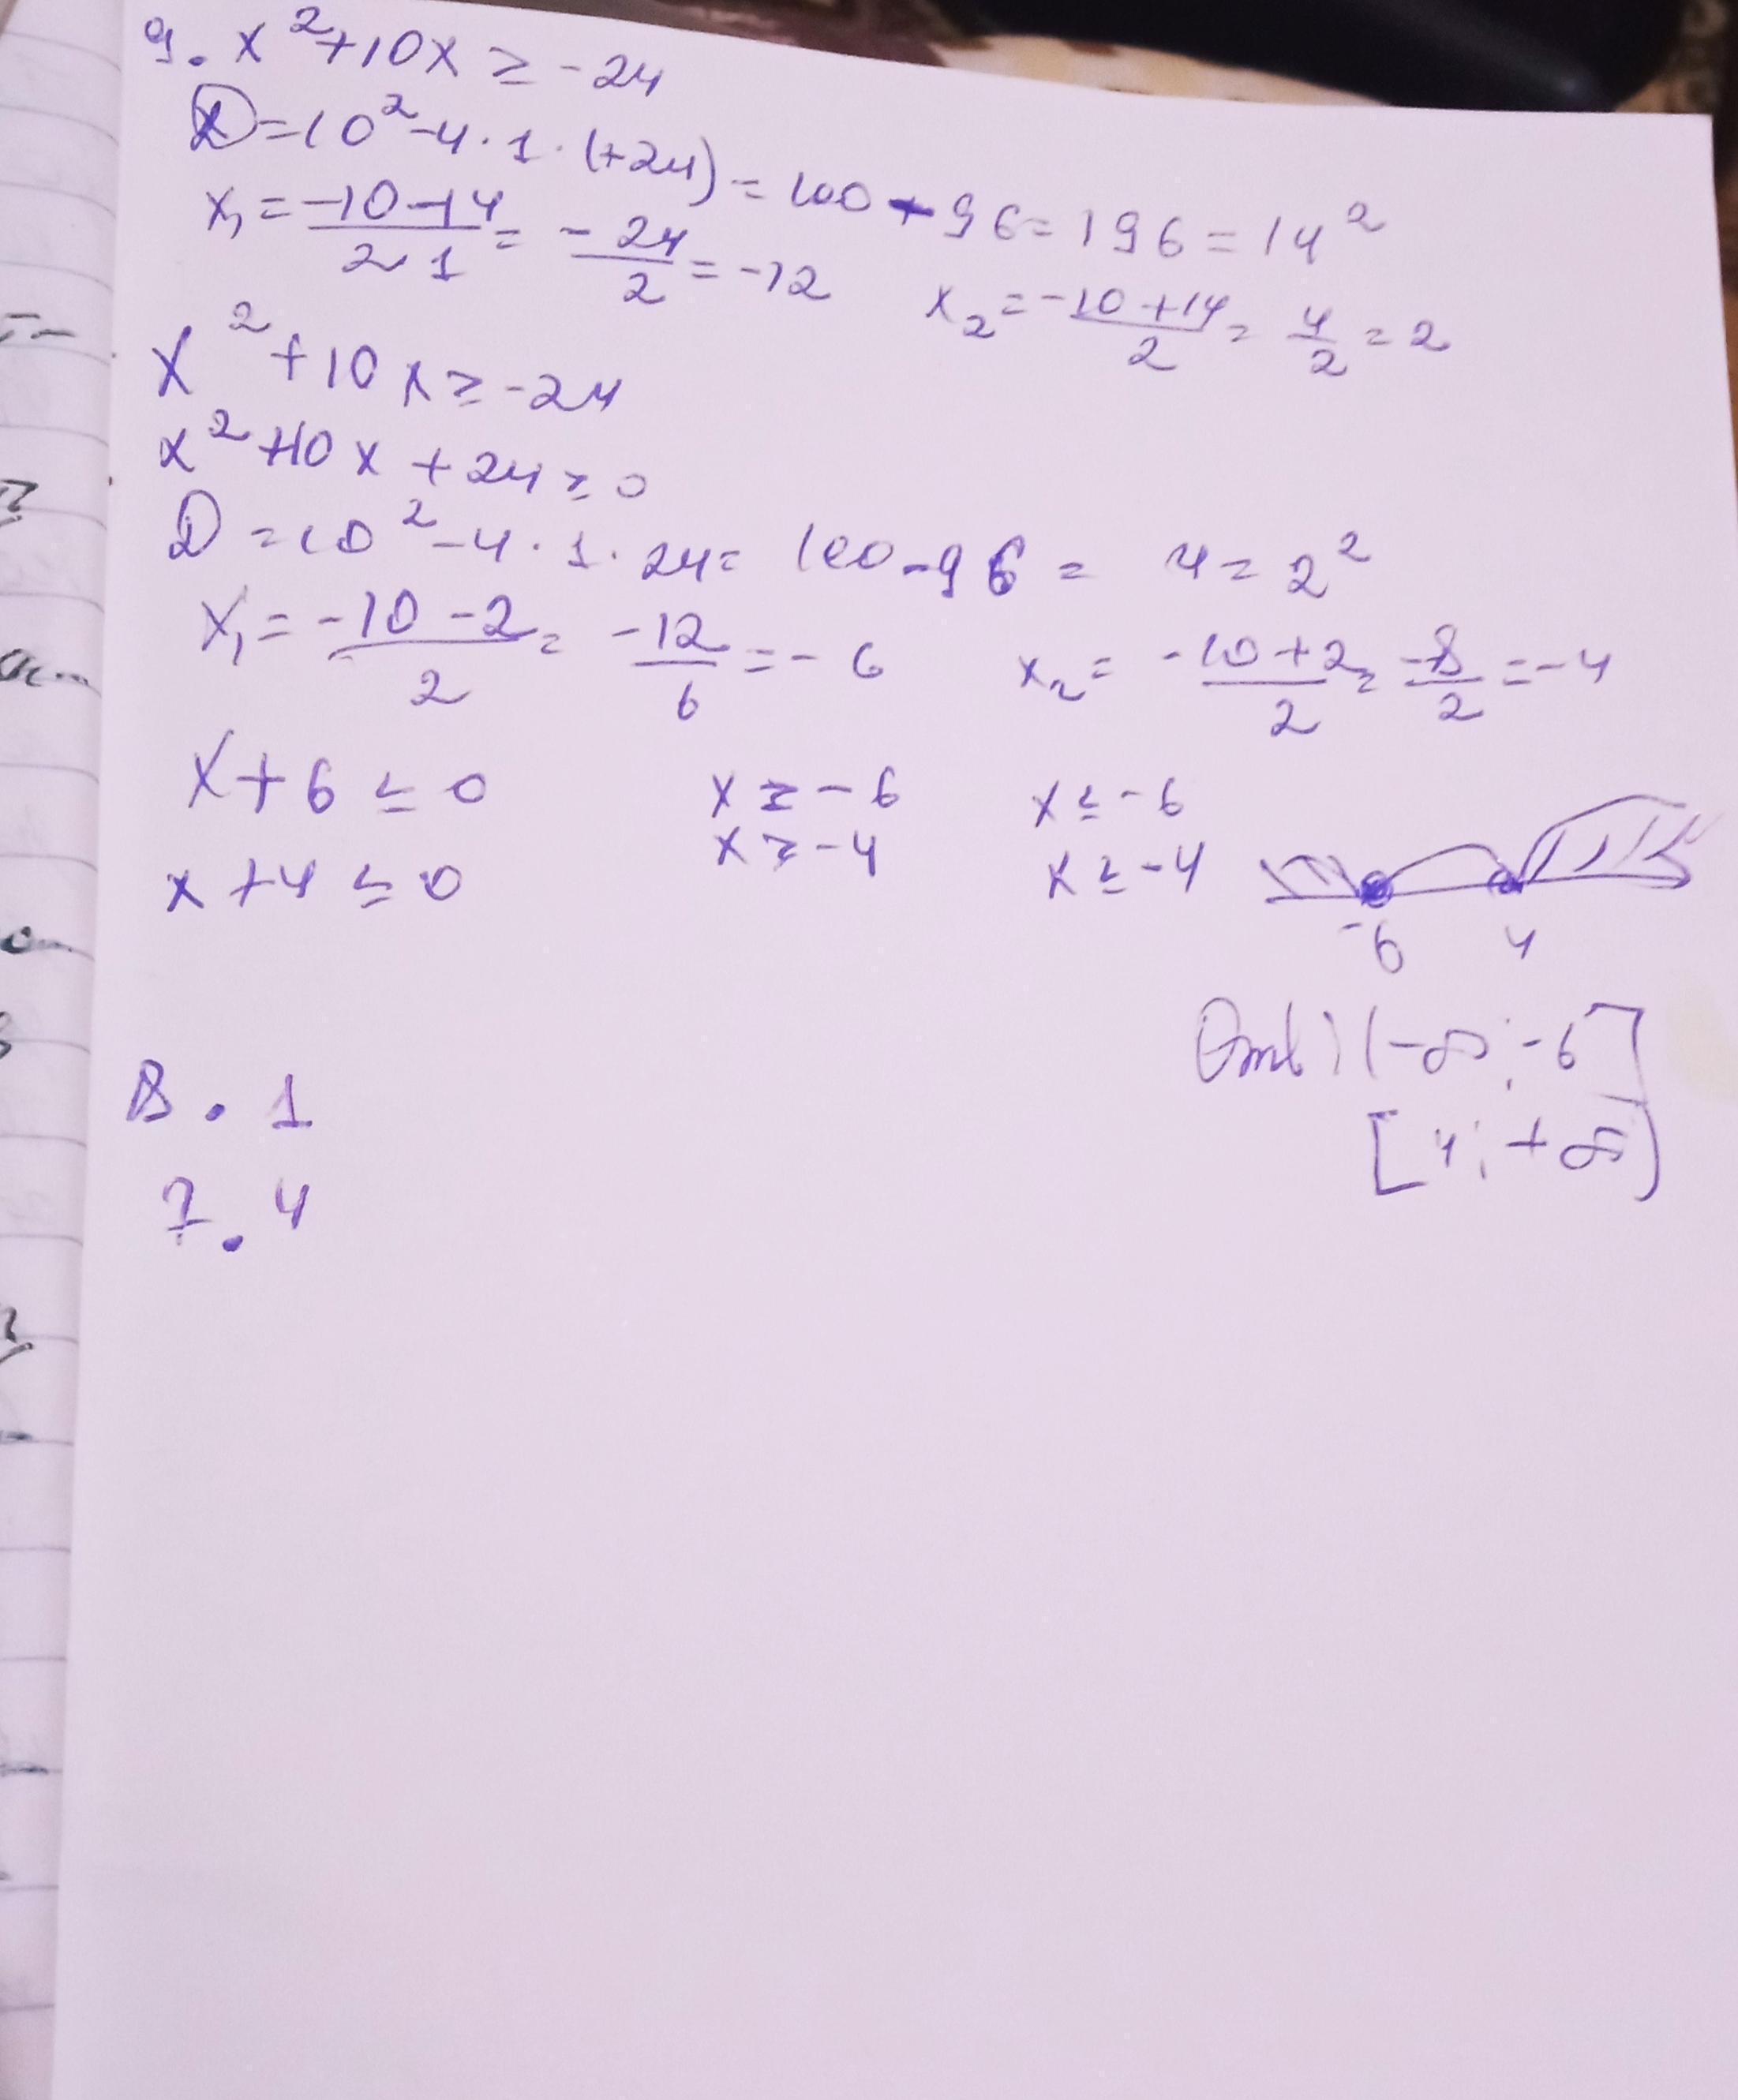 9. x²+10x ≥ -24
D=10²-4·1·(+24)=100+96=196=14²
x₁=(-10-14)/(2 1)=-24/2=-12 x₂=(-10+14)/2=4/2=2
x²+10x≥-24
x²+10x+24≥0
D=10²-4·1·24=100-96=4=2²
x₁=(-10-2)/2=-12/6=-6 x₂=(-10+2)/2=-8/2=-4
x+6≤0 x≥-6 x≤-6
x+4≤0 x≥-4 x≥-4
-6 4
Ответ: (-∞;-6]
[4;+∞)
8. 1
7. 4